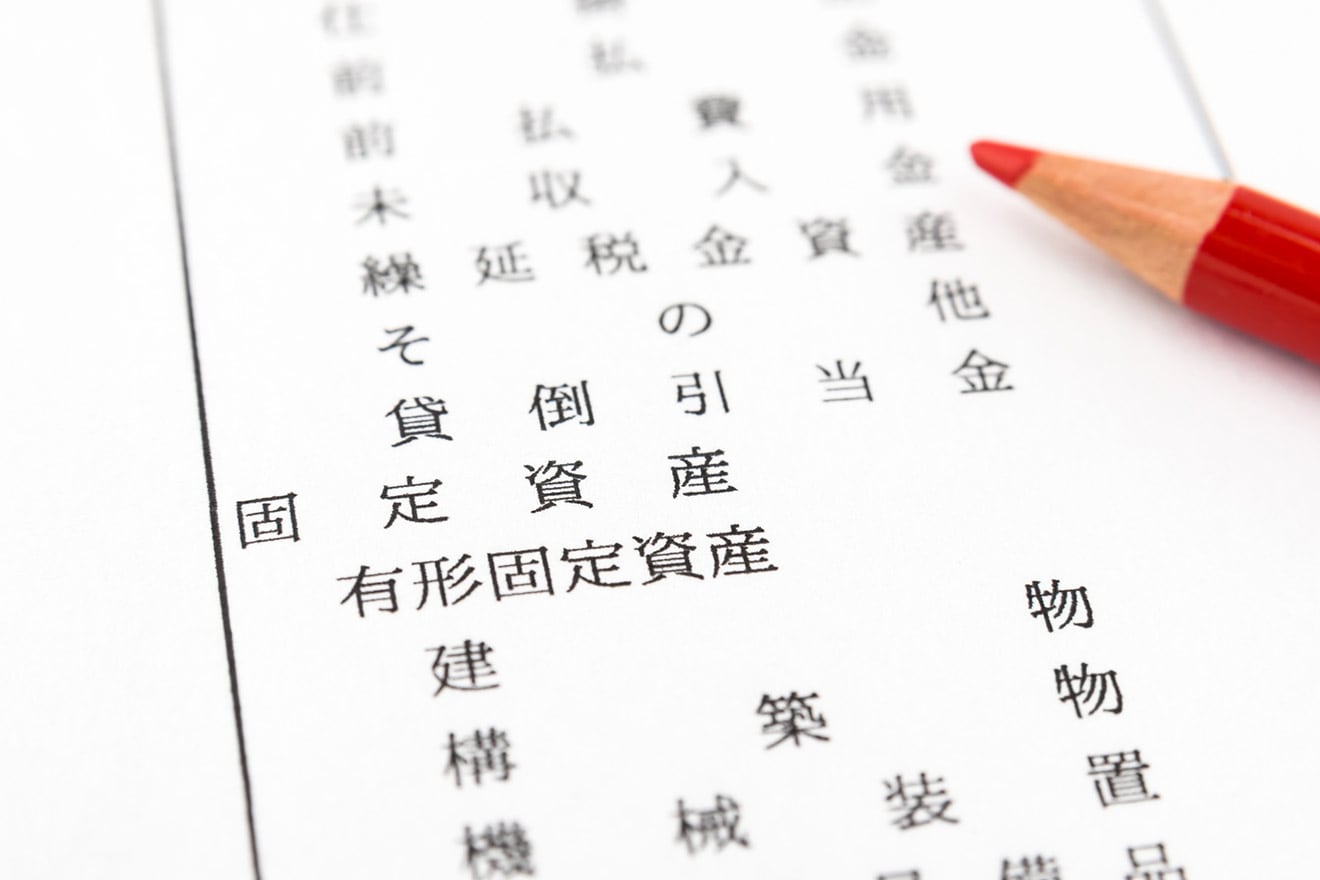 仕
前払金
前払費用
未収入金
繰延税金資産
その他
貸倒引当金
固定資産
有形固定資産
建物
構築物
機械装置
備品